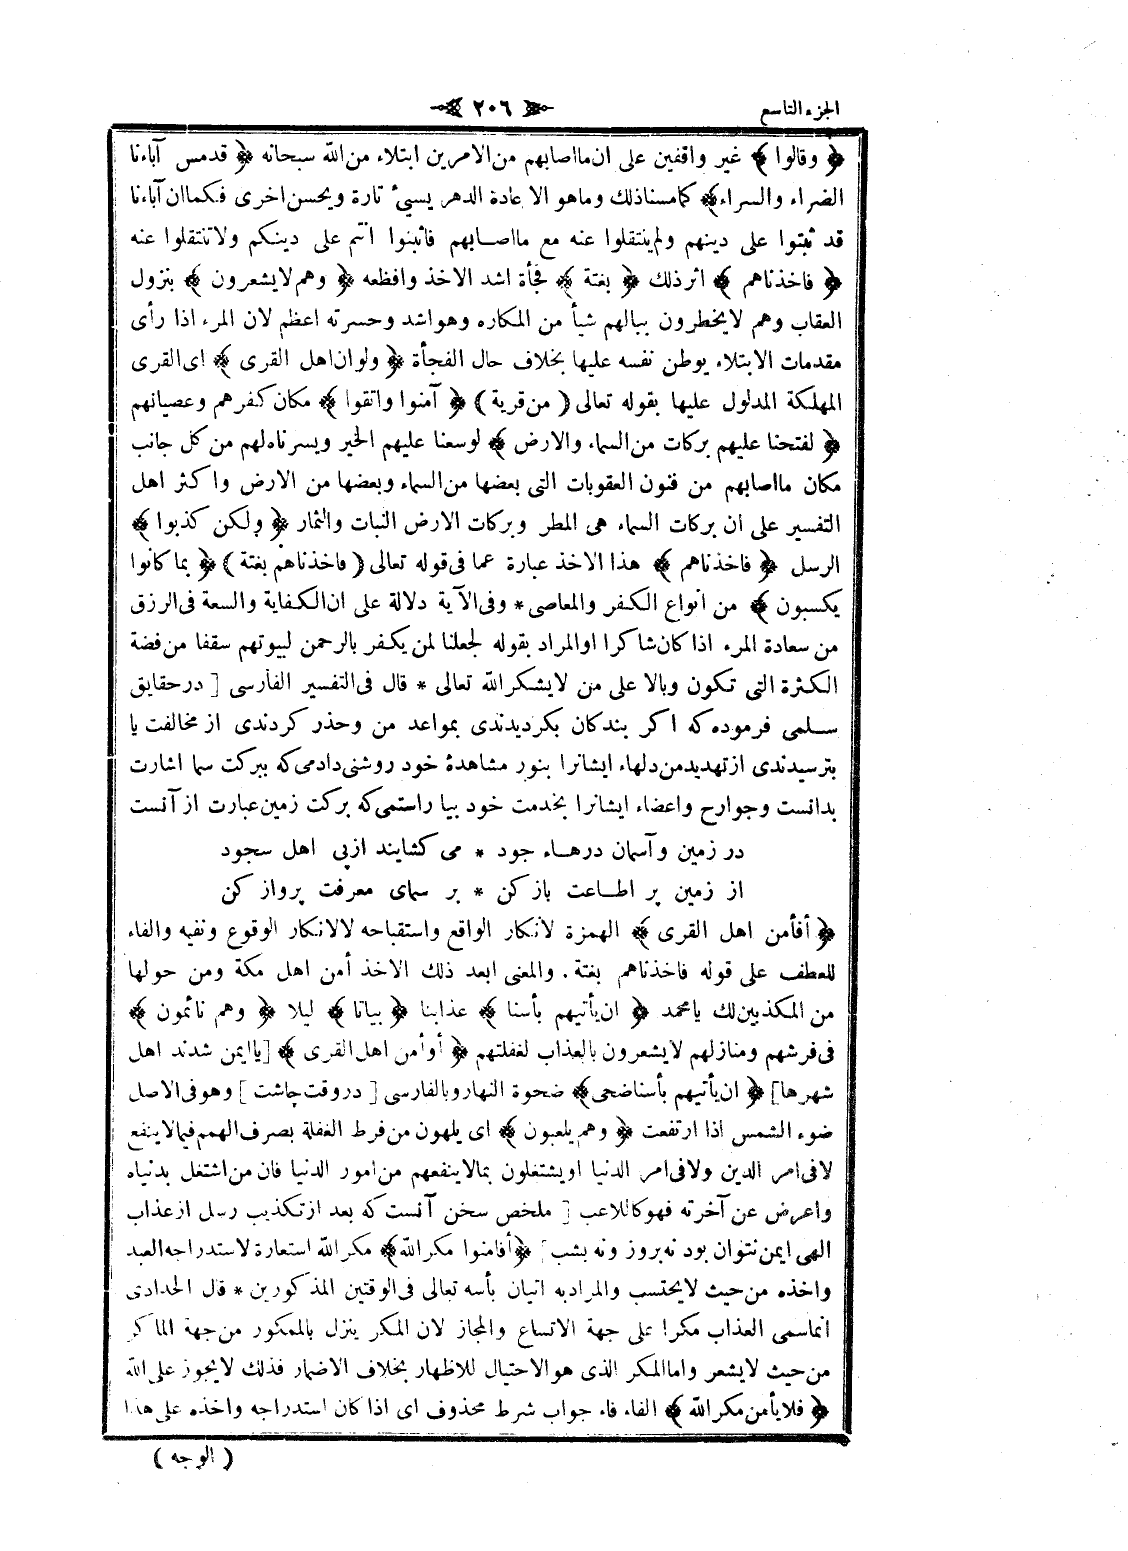 الجزء التاسع ﴿ ٢٠٦ ﴾
﴿ وقالوا ﴾ غير واقفين على ان مااصابهم من الامرين ابتلاء من الله سبحانه ﴿ قدمس آباءنا
الضراء والسراء ﴾ كمامسناذلك وماهو الا عادة الدهر يسيئ تارة ويحسن اخرى فكماان آباءنا
قد ثبتوا على دينهم ولم ينتقلوا عنه مع مااصابهم فاثبتوا انتم على دينكم ولاتنتقلوا عنه
﴿ فاخذناهم ﴾ اثرذلك ﴿ بغتة ﴾ فجأة اشد الاخذ وافظعه ﴿ وهم لايشعرون ﴾ بنزول
العقاب وهم لايخطرون ببالهم شيأ من المكاره وهواشد وحسرته اعظم لان المرء اذا رأى
مقدمات الابتلاء يوطن نفسه عليها بخلاف حال الفجأة ﴿ ولوان اهل القرى ﴾ اى القرى
المهلكة المدلول عليها بقوله تعالى ( من قرية ) ﴿ آمنوا واتقوا ﴾ مكان كفرهم وعصيانهم
﴿ لفتحنا عليهم بركات من السماء والارض ﴾ لوسعنا عليهم الخير ويسرناه لهم من كل جانب
مكان مااصابهم من فنون العقوبات التى بعضها من السماء وبعضها من الارض واكثر اهل
التفسير على ان بركات السماء هى المطر وبركات الارض النبات والثمار ﴿ ولكن كذبوا ﴾
الرسل ﴿ فاخذناهم ﴾ هذا الاخذ عبارة عما فى قوله تعالى ( فاخذناهم بغتة ) ﴿ بما كانوا
يكسبون ﴾ من انواع الكفر والمعاصى * وفى الآية دلالة على ان الكفاية والسعة فى الرزق
من سعادة المرء اذا كان شاكرا او المراد بقوله لجعلنا لمن يكفر بالرحمن لبيوتهم سقفا من فضة
الكثرة التى تكون وبالا على من لايشكر الله تعالى * قال فى التفسير الفارسى [ درحقايق
سلمى فرموده كه اكر بندكان بكرديدندى بمواعد من وحذر كردندى از مخالفت يا
بترسيدندى ازتهديدمن دلهاء ايشانرا بنور مشاهدهٔ خود روشنى دادمى كه ببركت سما اشارت
بدانست وجوارح واعضاء ايشانرا بخدمت خود بيا راستمى كه بركت زمين عبارت از آنست
در زمين وآسمان درهاء جود * مى كشايند ازپى اهل سجود
از زمين پر اطاعت باز كن * بر سماى معرفت پرواز كن
﴿ أفأمن اهل القرى ﴾ الهمزة لانكار الواقع واستقباحه لالانكار الوقوع ونفيه والفاء
للعطف على قوله فاخذناهم بغتة . والمعنى ابعد ذلك الاخذ أمن اهل مكة ومن حولها
من المكذبين لك يامحمد ﴿ ان يأتيهم بأسنا ﴾ عذابنا ﴿ بياتا ﴾ ليلا ﴿ وهم نائمون ﴾
فى فرشهم ومنازلهم لايشعرون بالعذاب لغفلتهم ﴿ أوأمن اهل القرى ﴾ [ ياايمن شدند اهل
شهرها ] ﴿ ان يأتيهم بأسنا ضحى ﴾ ضحوة النهار وبالفارسى [ دروقت چاشت ] وهوفى الاصل
ضوء الشمس اذا ارتفعت ﴿ وهم يلعبون ﴾ اى يلهون من فرط الغفلة بصرف الهمم فيمالاينفع
لافى امر الدين ولافى امر الدنيا اويشتغلون بمالاينفعهم من امور الدنيا فان من اشتغل بدنياه
واعرض عن آخرته فهو كاللاعب [ ملخص سخن آنست كه بعد ازتكذيب رسل ازعذاب
الهى ايمن نتوان بود نه بروز ونه بشب ] ﴿ أفامنوا مكر الله ﴾ مكر الله استعارة لاستدراجه العبد
واخذه من حيث لايحتسب والمرادبه اتيان بأسه تعالى فى الوقتين المذكورين * قال الحدادى
انماسمى العذاب مكرا على جهة الاتساع والمجاز لان المكر ينزل بالممكور من جهة الماكر
من حيث لايشعر واماالمكر الذى هو الاحتيال للاظهار بخلاف الاضمار فذلك لايجوز على الله
﴿ فلايأمن مكر الله ﴾ الفاء فاء جواب شرط محذوف اى اذا كان استدراجه واخذه على هذا
( الوجه )